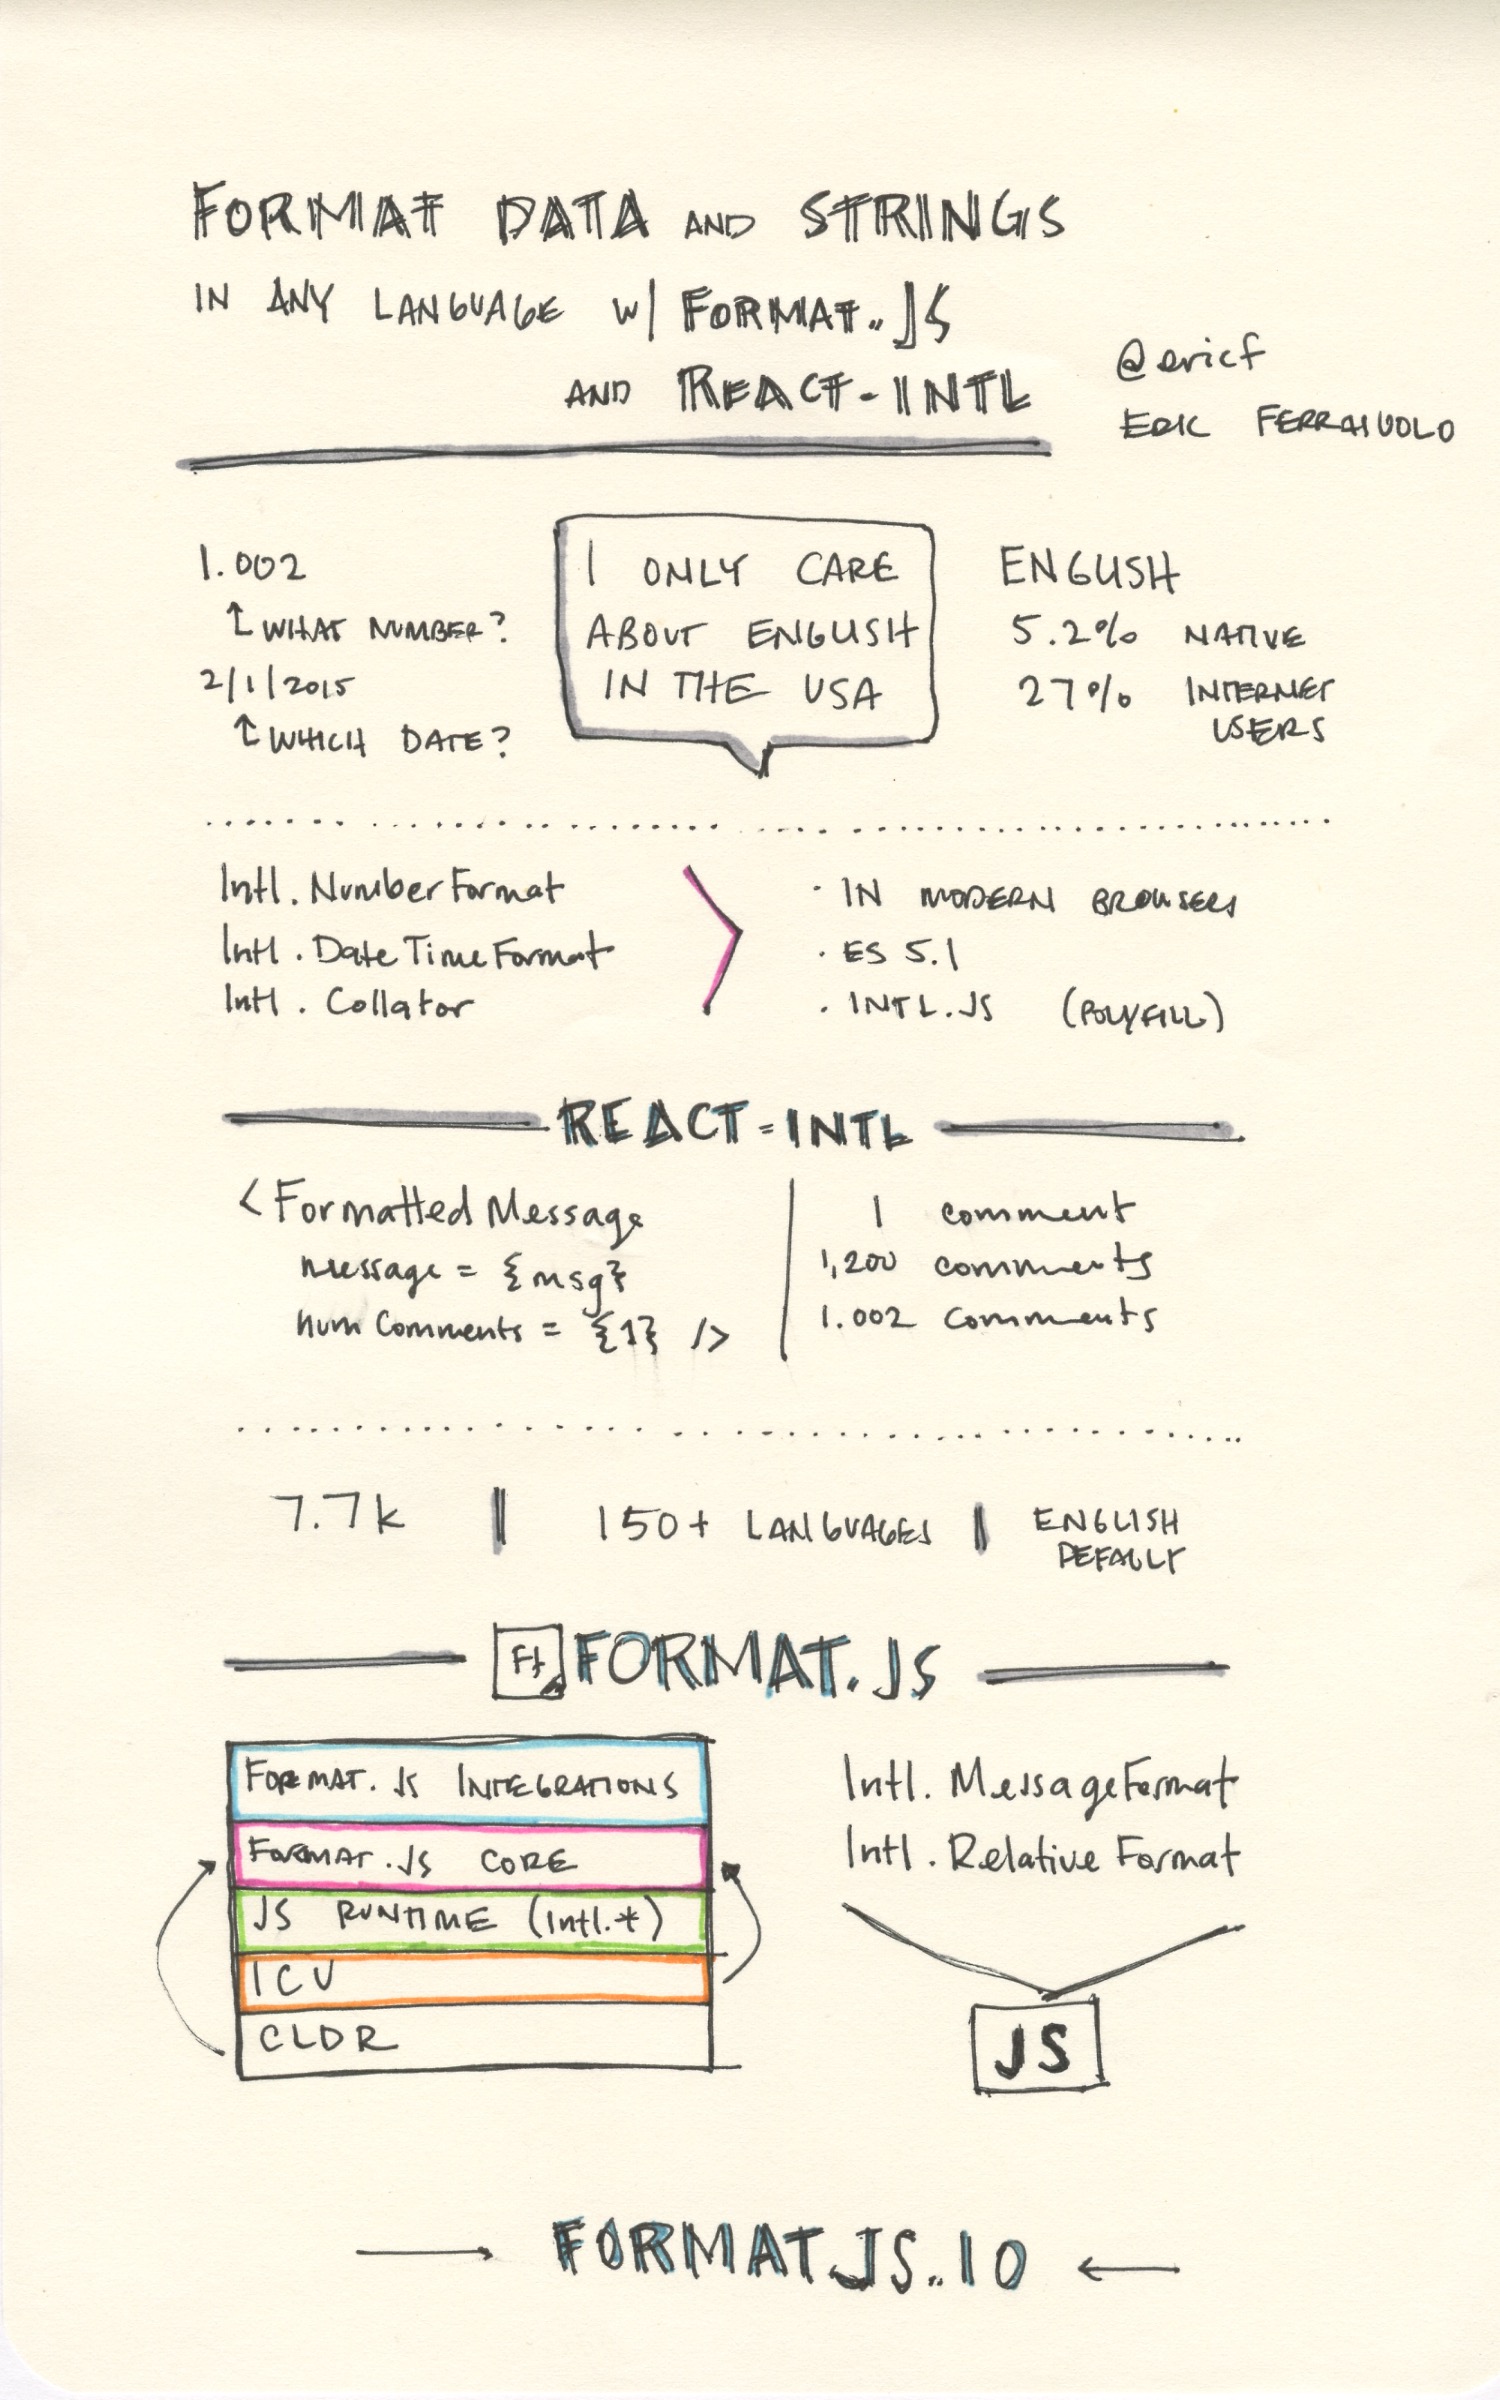 FORMAT DATA AND STRINGS
IN ANY LANGUAGE W/ FORMAT.JS
AND REACT-INTL
@ericf
ERIC FERRAIUOLO
1.002
↑ WHAT NUMBER?
2/1/2015
↑ WHICH DATE?
I ONLY CARE
ABOUT ENGLISH
IN THE USA
ENGLISH
5.2% NATIVE
27% INTERNET
USERS
Intl.NumberFormat
Intl.DateTimeFormat
Intl.Collator
· IN MODERN BROWSERS
· ES 5.1
· INTL.JS (POLYFILL)
REACT-INTL
<FormattedMessage
message = {msg}
numComments = {1} />
1 comment
1,200 comments
1.002 comments
7.7k
150+ LANGUAGES
ENGLISH
DEFAULT
Ft FORMAT.JS
FORMAT.JS INTEGRATIONS
FORMAT.JS CORE
JS RUNTIME (Intl.*)
ICU
CLDR
Intl.MessageFormat
Intl.RelativeFormat
JS
→ FORMATJS.IO ←